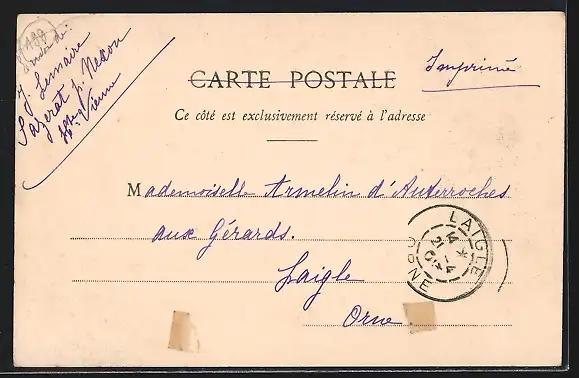 Envoi de:
J. Lemaire
Lazerat p. Nexon
Hte Vienne
CARTE POSTALE
Imprimé
Ce côté est exclusivement réservé à l'adresse
Mademoiselle Armelin d'Auterroches
aux Gérards.
Laigle
Orne
LAIGLE
ORNE